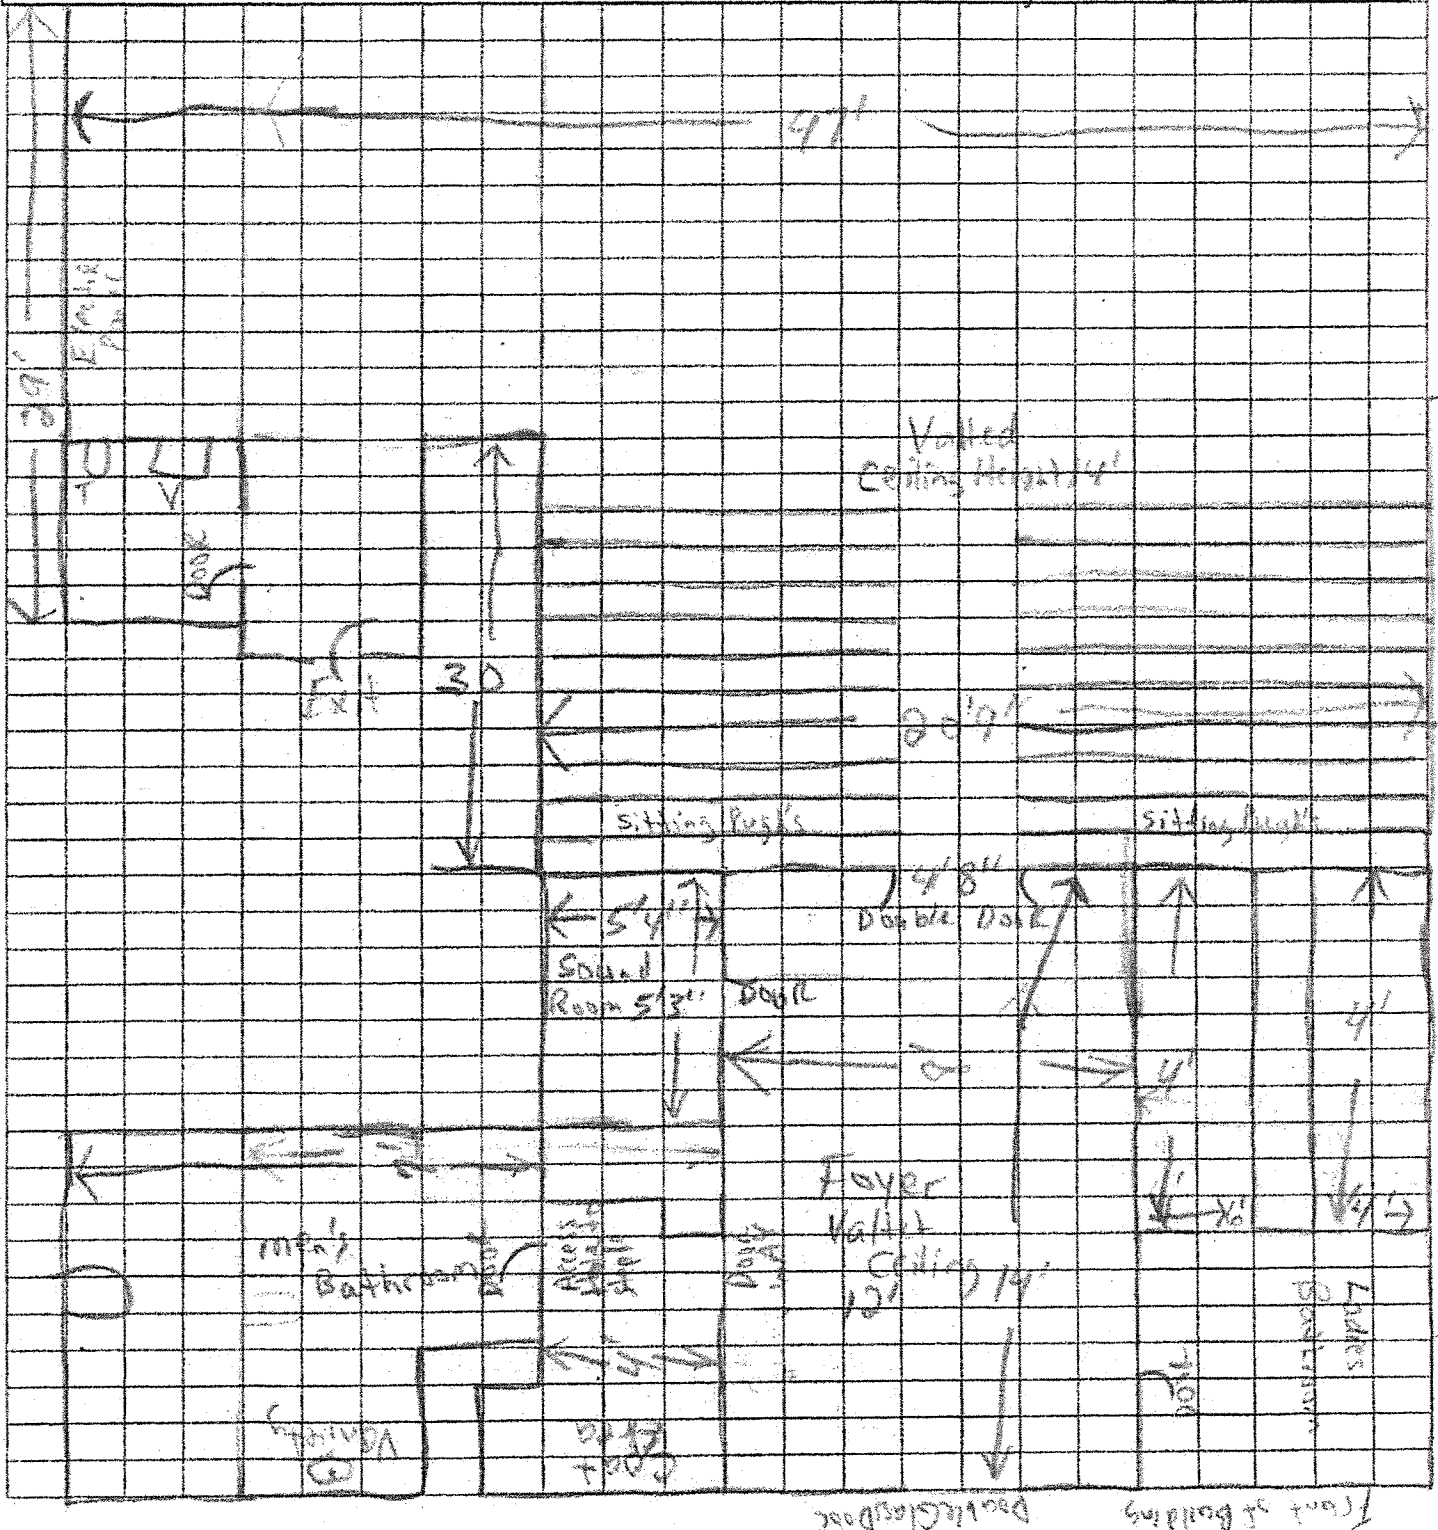 47'
29'
Valted
Ceiling Height 14'
T
V
DOOR
Exit
30
20'9"
Sitting Pugh's
Sitting Pugh's
5'4"
4'8"
Double Door
Sound
Room 5'3"
Door
8
4'
4'
Foyer
Valtit
Ceiling 14'
12'
men's
Bathroom
Door
Access
Door
way
4
Ladies
Bathroom
Door
Vaniety
Coat
Area
Double Glass Door
Front of Building